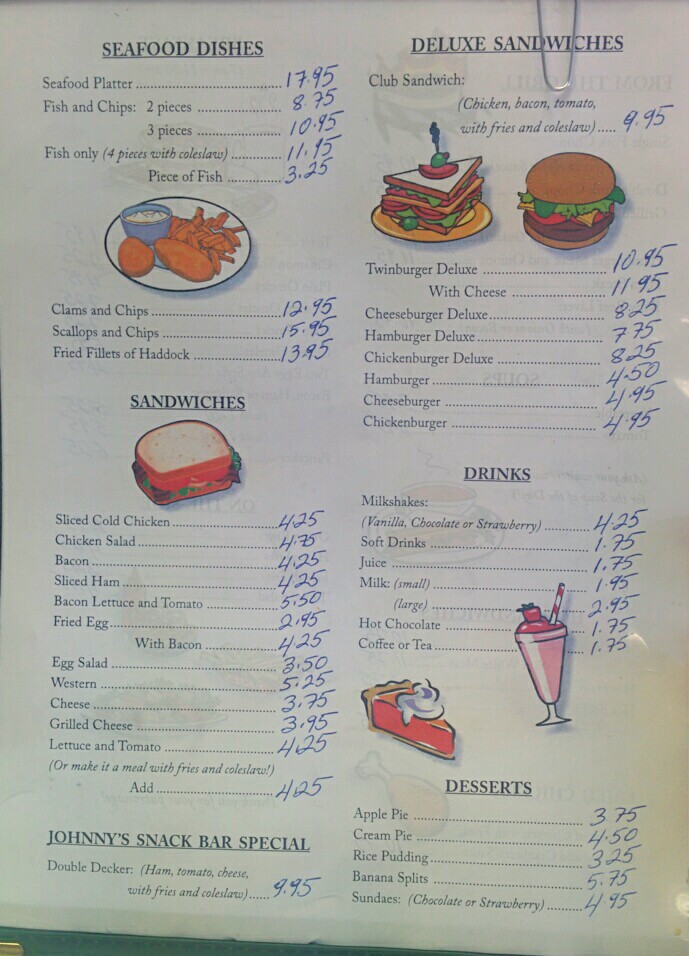 SEAFOOD DISHES
Seafood Platter 17.95
Fish and Chips: 2 pieces 8.75
3 pieces 10.95
Fish only (4 pieces with coleslaw) 11.95
Piece of Fish 3.25
Clams and Chips 12.95
Scallops and Chips 15.95
Fried Fillets of Haddock 13.95
SANDWICHES
Sliced Cold Chicken 4.25
Chicken Salad 4.75
Bacon 4.25
Sliced Ham 4.25
Bacon Lettuce and Tomato 5.50
Fried Egg 2.95
With Bacon 4.25
Egg Salad 3.50
Western 5.25
Cheese 3.75
Grilled Cheese 3.95
Lettuce and Tomato 4.25
(Or make it a meal with fries and coleslaw!)
Add 4.25
JOHNNY'S SNACK BAR SPECIAL
Double Decker: (Ham, tomato, cheese,
with fries and coleslaw) 9.95
DELUXE SANDWICHES
Club Sandwich:
(Chicken, bacon, tomato,
with fries and coleslaw) 9.95
Twinburger Deluxe 10.95
With Cheese 11.95
Cheeseburger Deluxe 8.25
Hamburger Deluxe 7.75
Chickenburger Deluxe 8.25
Hamburger 4.50
Cheeseburger 4.95
Chickenburger 4.95
DRINKS
Milkshakes:
(Vanilla, Chocolate or Strawberry) 4.25
Soft Drinks 1.75
Juice 1.75
Milk: (small) 1.95
(large) 2.95
Hot Chocolate 1.75
Coffee or Tea 1.75
DESSERTS
Apple Pie 3.75
Cream Pie 4.50
Rice Pudding 3.25
Banana Splits 5.75
Sundaes: (Chocolate or Strawberry) 4.95